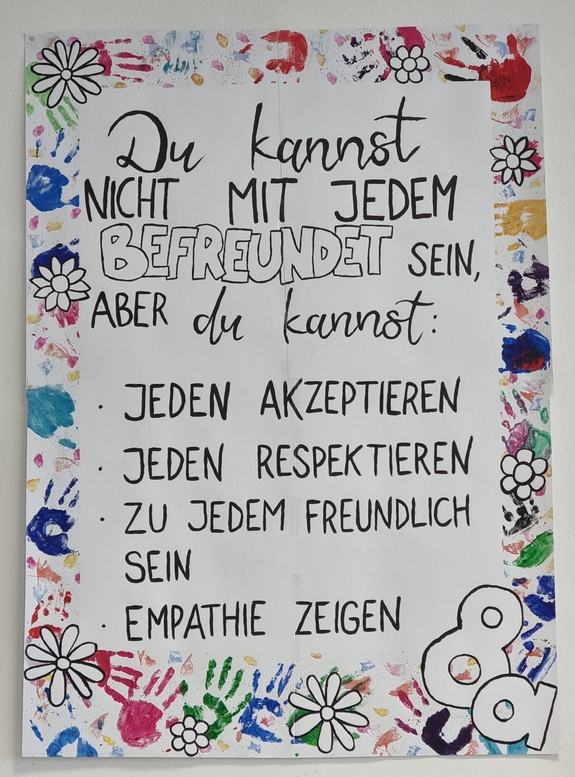 Du kannst
NICHT MIT JEDEM
BEFREUNDET SEIN,
ABER du kannst:
· JEDEN AKZEPTIEREN
· JEDEN RESPEKTIEREN
· ZU JEDEM FREUNDLICH
SEIN
· EMPATHIE ZEIGEN
8a